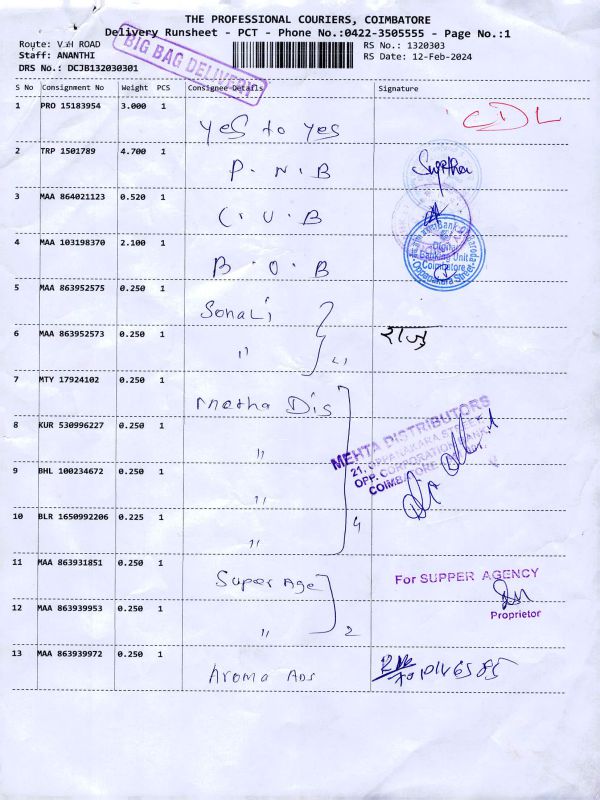 THE PROFESSIONAL COURIERS, COIMBATORE
Delivery Runsheet - PCT - Phone No.:0422-3505555 - Page No.:1
Route: V.H ROAD
RS No.: 1320303
Staff: ANANTHI
RS Date: 12-Feb-2024
DRS No.: DCJB132030301
BIG BAG DELIVERY
S No Consignment No Weight PCS Consignee Details Signature
1 PRO 15183954 3.000 1 Yes to yes CDL
2 TRP 1501789 4.700 1 P.N.B
3 MAA 864021123 0.520 1 C.U.B
4 MAA 103198370 2.100 1 B.O.B
Bank Baroda
Digital
Banking Unit
Coimbatore
Oppanakara Street
5 MAA 863952575 0.250 1 SonaLi
6 MAA 863952573 0.250 1 " राजु
7 MTY 17924102 0.250 1 Metha Dis
8 KUR 530996227 0.250 1 "
MEHTA DISTRIBUTORS
21, OPPANAKARA STREET
OPP. CORPORATION BANK,
COIMBATORE
9 BHL 100234672 0.250 1 "
10 BLR 1650992206 0.225 1 " 4
11 MAA 863931851 0.250 1 Super Age
For SUPPER AGENCY
Proprietor
12 MAA 863939953 0.250 1 " 2
13 MAA 863939972 0.250 1 Aroma